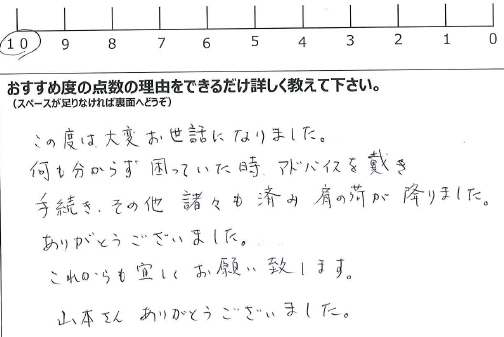 10 9 8 7 6 5 4 3 2 1 0
おすすめ度の点数の理由をできるだけ詳しく教えて下さい。
(スペースが足りなければ裏面へどうぞ)
この度は大変お世話になりました。
何も分からず困っていた時、アドバイスを戴き
手続き、その他 諸々も済み 肩の荷が降りました。
ありがとうございました。
これからも宜しくお願い致します。
山本さん ありがとうございました。